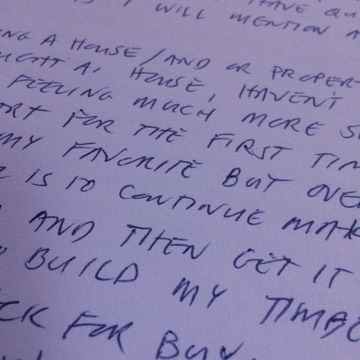 HAVE QU
I WILL MENTION A
NG A HOUSE/AND OR PROPER
UGHT A HOUSE, HAVEN'T
FEELING MUCH MORE S
ORT FOR THE FIRST TIM
MY FAVORITE BUT OVE
IS TO CONTINUE MAK
AND THEN GET IT
BUILD MY TIMB
CK FOR BUY